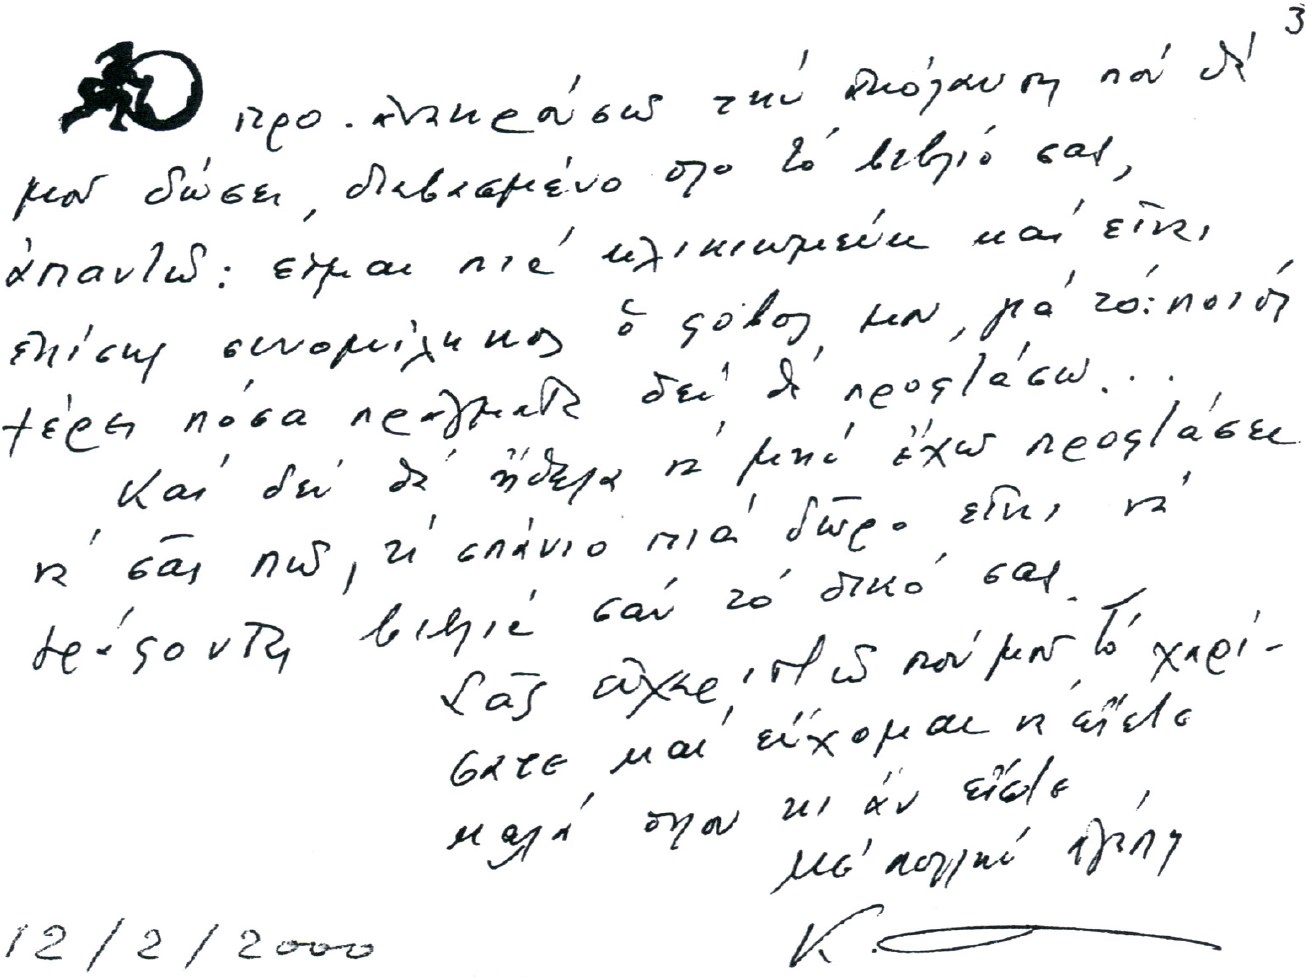 3
προ.ανακρούσω τήν ἀπόλαυση πού θά
μοῦ δώσει, διαβασμένο ὅλο τό βιβλίο σας,
ἀπαντῶ: εἶμαι πιά ἡλικιωμένη καί εἶναι
ἐπίσης συνομήλικος ὁ φόβος μου, γιά τό: ποιός
ξέρει πόσα πράγματα δέν θά προφτάσω...
Καί δέν θά ἤθελα νά μήν ἔχω προφτάσει
νά σᾶς πῶ, τί σπάνιο πιά δῶρο εἶναι νά
γράφονται βιβλία σάν τό δικό σας.
Σᾶς εὐχαριστῶ πού μοῦ τό χαρί-
σατε καί εὔχομαι νά εἶστε
καλά ὅπου κι ἄν εἶστε
Μέ πολλήν ἀγάπη
Κ.
12/2/2000